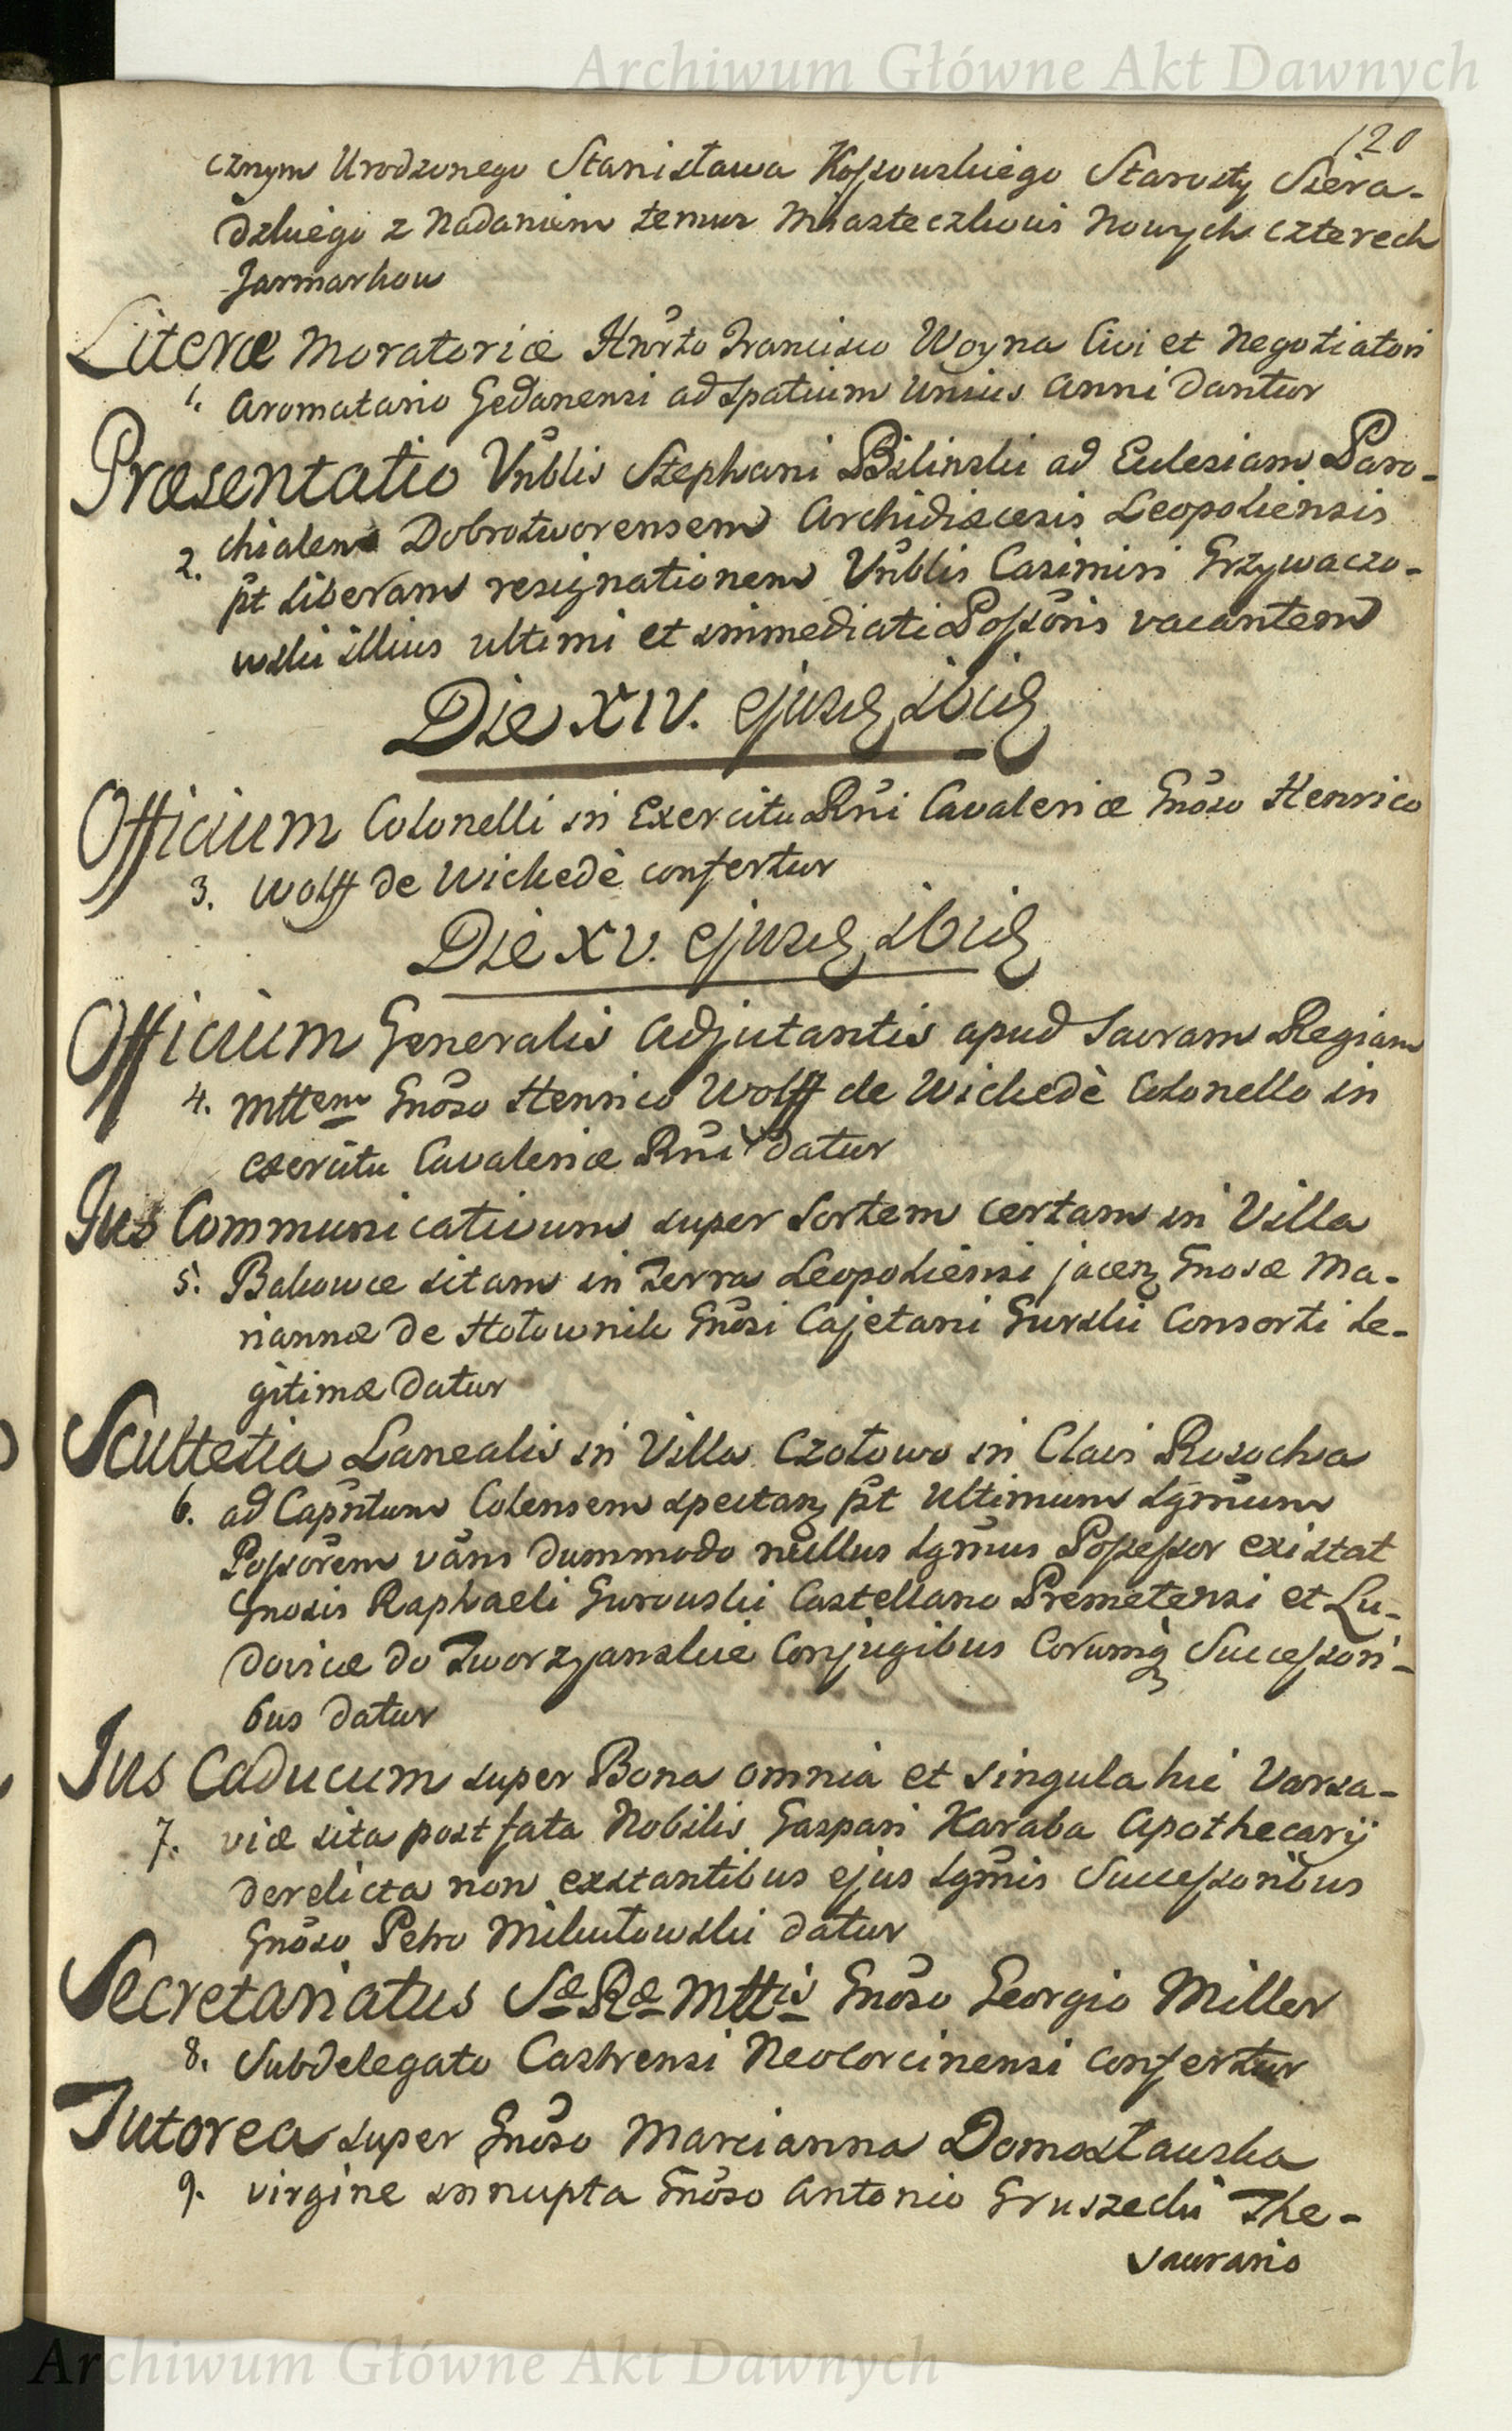 Archiwum Główne Akt Dawnych
120
cznym Urodzonego Stanisława Kossowskiego Starosty Siera-
dzkiego z Nadaniem temuz Miasteczkowi Nowych czterech
Jarmarkow
Literæ Moratoriæ Hnrto Francisco Woyna Civi et Negotiatori
1. Aromatario Gedanensi ad spatium Unius Anni dantur
Præsentatio Vnblis Stephani Bilinski ad Ecclesiam Paro-
chialem Dobrotworensem Archidiæcesis Leopoliensis
2. pt liberam resignationem Vnblis Casimiri Grzywaczo-
wski illius ultimi et immediati Possoris vacantem
Die XIV. ejusd ibid
Officium Colonelli in Exercitu Rni Cavaleriæ Gnoso Henrico
3. Wolff de Wickedè confertur
Die XV. ejusd ibid
Officium Generalis Adjutantis apud Sacram Regiam
4. Mttem Gnoso Henrico Wolff de Wickedè Colonello in
exercitu Cavaleriæ Rni datur
Jus Communicativum super Sortem certam in Villa
5. Bakowce sitam in Terra Leopoliensi jacen Gnosæ Ma-
riannæ de Hołownik Gnosi Cajetani Gurski Consorti le-
gitimæ datur
Scultetia Lanealis in Villa Czołowo in Clavi Rosocha
6. ad Capntum Colensem spectan pt Ultimum Lgmum
Possorem van dummodo nullus Lgmus Possessor existat
Gnosis Raphaeli Gurowski Castellano Premetensi et Lu-
dovicæ de Tworzyanskie Conjugibus Eorumq Successori-
bus datur
Jus Caducum super Bona omnia et singula hic Varsa-
7. viæ sita post fata Nobilis Gaspari Karaba Apothecarij
derelicta non exstantibus ejus Lgmis Successoribus
Gnoso Petro Mikułowski datur
Secretariatus Sæ Ræ Mttis Gnoso Georgio Miller
8. Subdelegato Castrensi Neocorcinensi confertur
Tutorea super Gnoso Marcianna Domosławska
9. virgine innupta Gnoso Antonio Gruszecki The-
saurario
Archiwum Główne Akt Dawnych